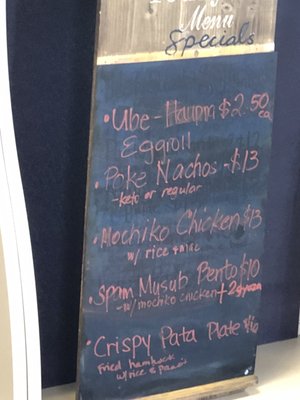 Menu
Specials
• Ube - Haupia $2.50
ea
Eggroll
• Poke Nachos - $13
- keto or regular
• Mochiko Chicken $13
w/ rice + mac
• Spam Musub Bento $10
- w/ mochiko chicken + 2 gyoza
• Crispy Pata Plate $16
Fried ham hock
w/ rice &